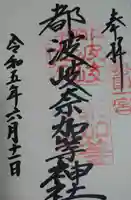 奉拝
都波岐奈加等神社
令和五年六月十一日